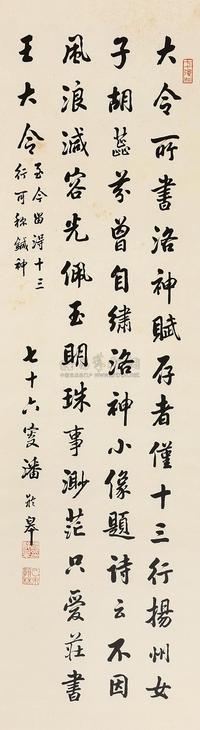 大令所書洛神賦存者僅十三行揚州女
子胡蕊芬曾自繡洛神小像題詩云不因
風浪減容光佩玉明珠事渺茫只愛莊書
王大令
至今留得十三
行可稱鍼神
七十六叟潘齡皋